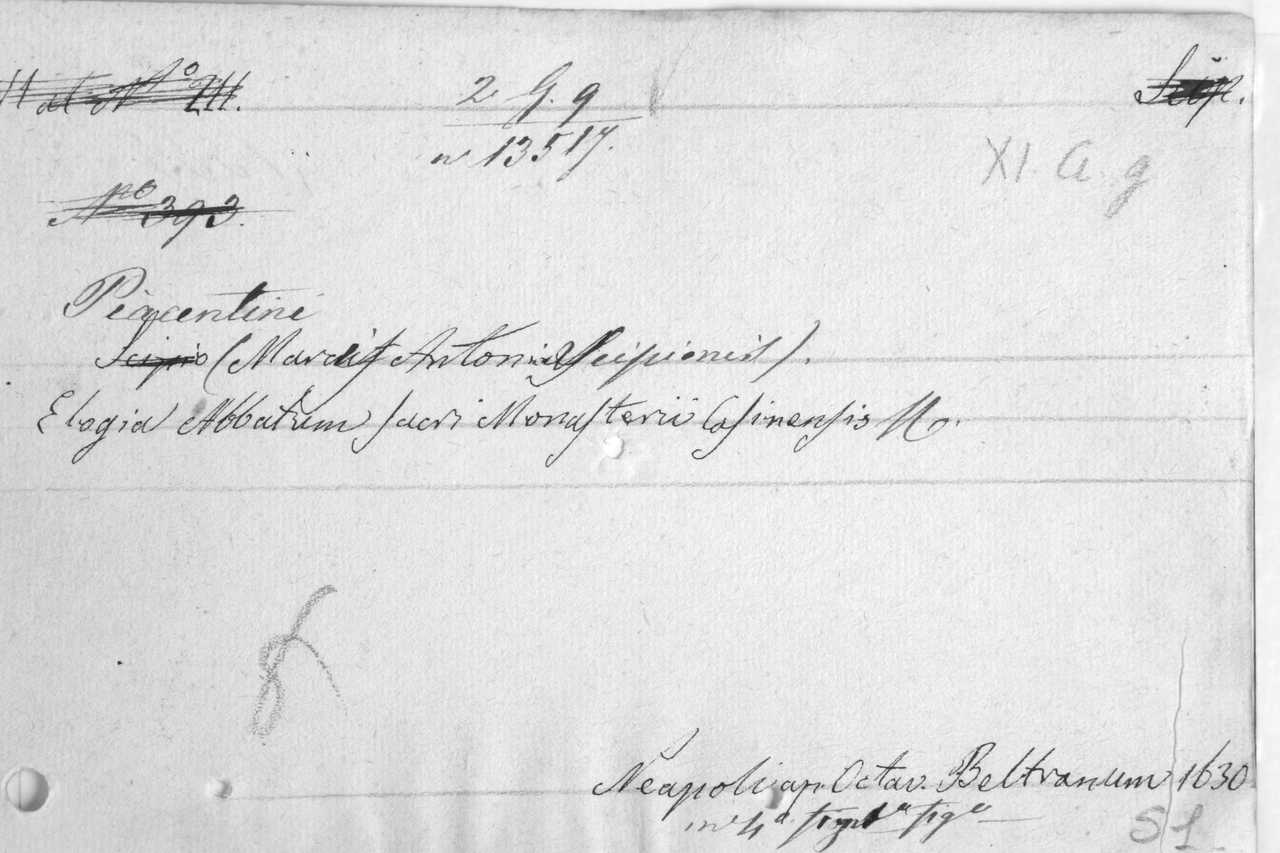 2 G. 9
n 13517.
XI. a. g
No 393.
Piacentini
Scipio (Marci Antonii Scipionis).
Elogia Abbatum sacri Monasterii Casinensis
Neapoli ap. Octav. Beltranum 1630
in 4a
S1